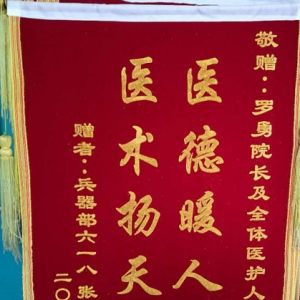 敬赠：罗勇院长及全体医护人
医德暖人
医术扬天
赠者：兵器部六一八张
二〇